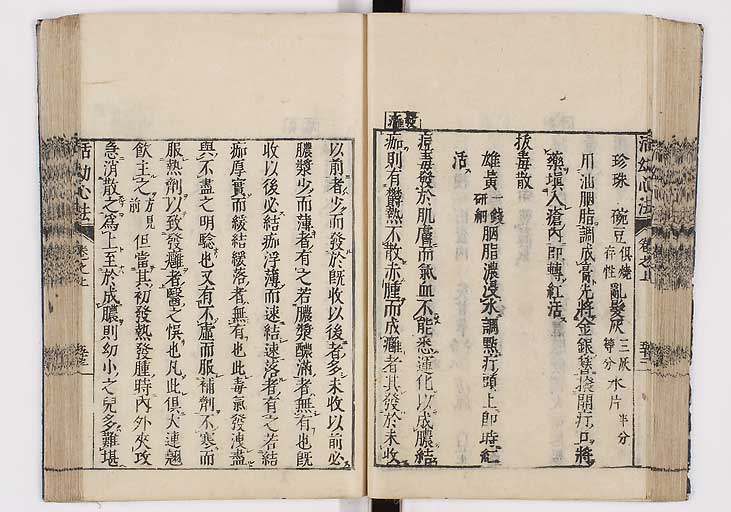 活幼心法 卷之
珍珠 豌豆俱燒存性 亂髮灰三灰等分 氷片半分
用油胭脂調成膏先將金銀簪撥開疔口將
藥塡入瘡內即轉紅活
拔毒散
雄黃一錢研細 胭脂濃浸水調點疔頭上即時紅
活
發癰
痘毒發於肌膚而氣血不能悉運化以成膿結
痂則有欝熱不散赤腫而成癰者其發於未收
以前者少而發於旣收以後者多未收以前必
膿漿少而薄者有之若膿漿釀滿者無有也旣
收以後必結痂浮薄而速結速落者有之若結
痂厚實而緩結緩落者無有也此毒氣發洩盡
與不盡之明驗也又有不虛而服補劑不寒而
服熱劑以致發癰者醫之悞也凡此俱大連翹
飮主之方見前 但當其初發熱發腫時內外夾攻
急消散之爲上至於成膿則幼小之兒多難堪
活幼心法 卷之